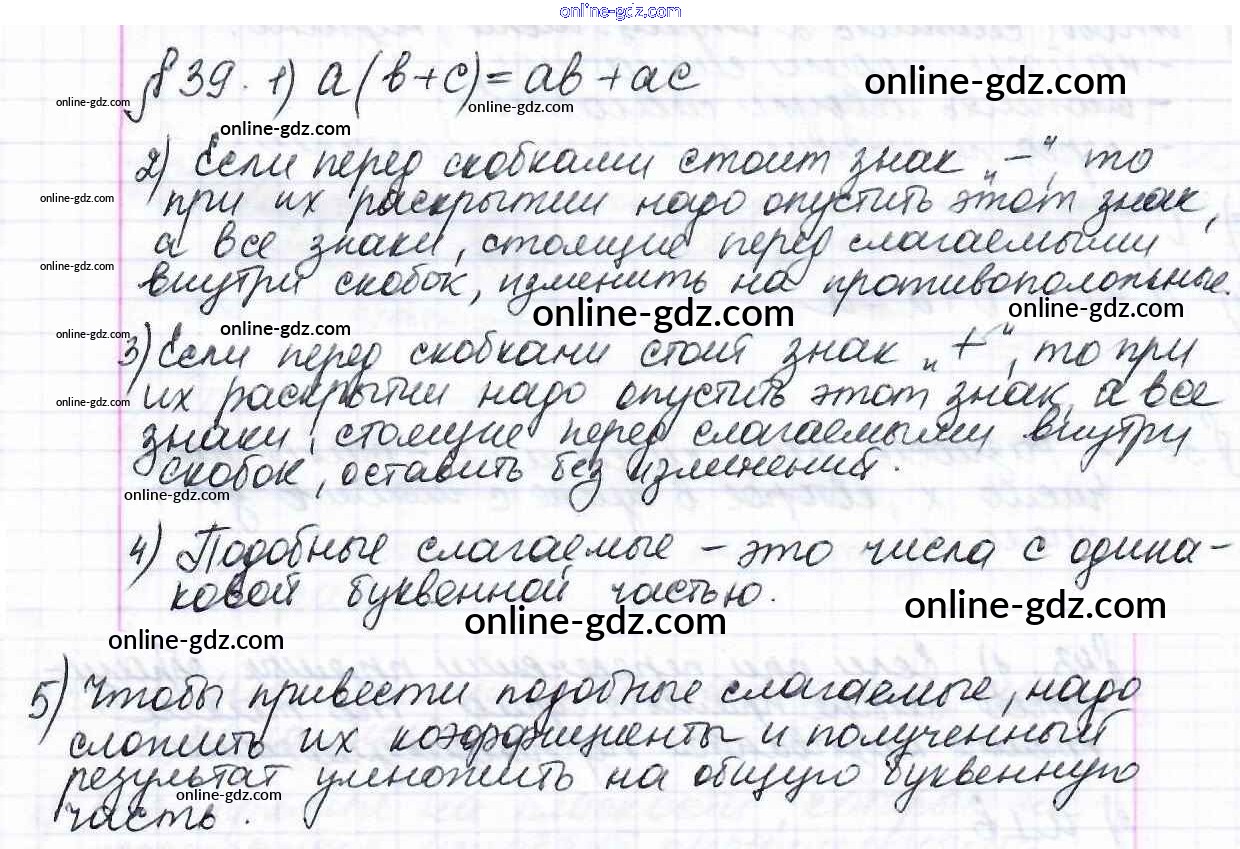 online-gdz.com
§ 39. 1) a(b+c)=ab+ac
online-gdz.com
online-gdz.com
online-gdz.com
online-gdz.com
2) Если перед скобками стоит знак „-“, то
при их раскрытии надо опустить этот знак,
online-gdz.com
а все знаки, стоящие перед слагаемыми
online-gdz.com
внутри скобок, изменить на противоположные.
online-gdz.com
online-gdz.com
online-gdz.com
online-gdz.com
3) Если перед скобками стоит знак „+“, то при
их раскрытии надо опустить этот знак, а все
online-gdz.com
знаки, стоящие перед слагаемыми внутри
скобок, оставить без изменений.
online-gdz.com
4) Подобные слагаемые – это числа с одина-
ковой буквенной частью.
online-gdz.com
online-gdz.com
online-gdz.com
5) Чтобы привести подобные слагаемые, надо
сложить их коэффициенты и полученный
результат умножить на общую буквенную
online-gdz.com
часть.